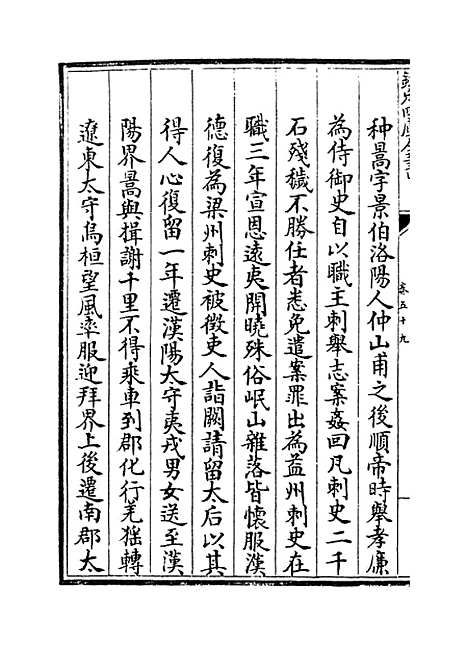 種暠字景伯洛陽人仲山甫之後順帝時舉孝廉
為侍御史自以職主刺舉志案姦回凡刺史二千
石殘穢不勝任者悉免遣案罪出為益州刺史在
職三年宣恩遠夷開曉殊俗岷山雜落皆懷服漢
德復為梁州刺史被徵吏人詣闕請留太后以其
得人心復留一年遷漢陽太守夷戎男女送至漢
陽界暠與揖謝千里不得乘車到郡化行羌猺轉
遼東太守烏桓望風率服迎拜界上後遷南郡太
卷五十九